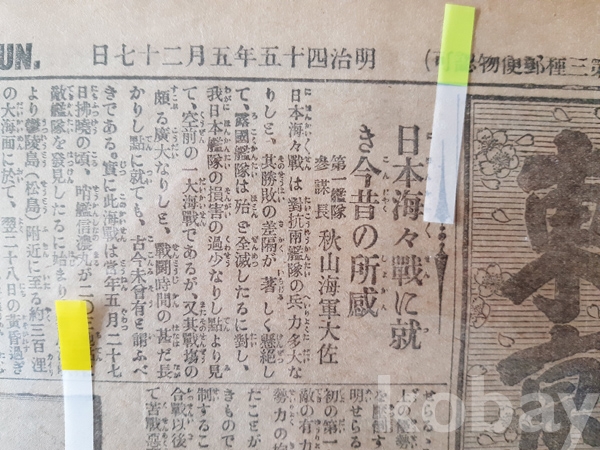 UN.
明治四十五年五月二十七日
第三種郵便物認可)
東京
日本海々戰に就
き今昔の所感
第一艦隊
參謀長 秋山海軍大佐
日本海々戰は對抗兩艦隊の兵力多大な
りしと、其勝敗の差隔が著しく懸絶し
て、露國艦隊は殆ど全滅したるに對し、
我日本艦隊の損害の過少なりし點より見
て、空前の一大海戰であるが、又其戰場の
頗る廣大なりしと、戰鬪時間の甚だ長
かりし點に就ても、古今未曾有と謂ふべ
きである。實に此海戰は當年五月二十七
日拂曉の頃、哨艦信濃丸が二〇三
敵艦隊を發見したるに始まり
より鬱陵島(松島)附近に至る約三百浬
の大海面に於て、翌二十八日の黄昏過ぎ
せらる
上の
を壓倒す
明せらる
初の第一
敵の有力
勢力の
たことが
きもので
制するこ
合戰以後
て苦戰惡
kobay